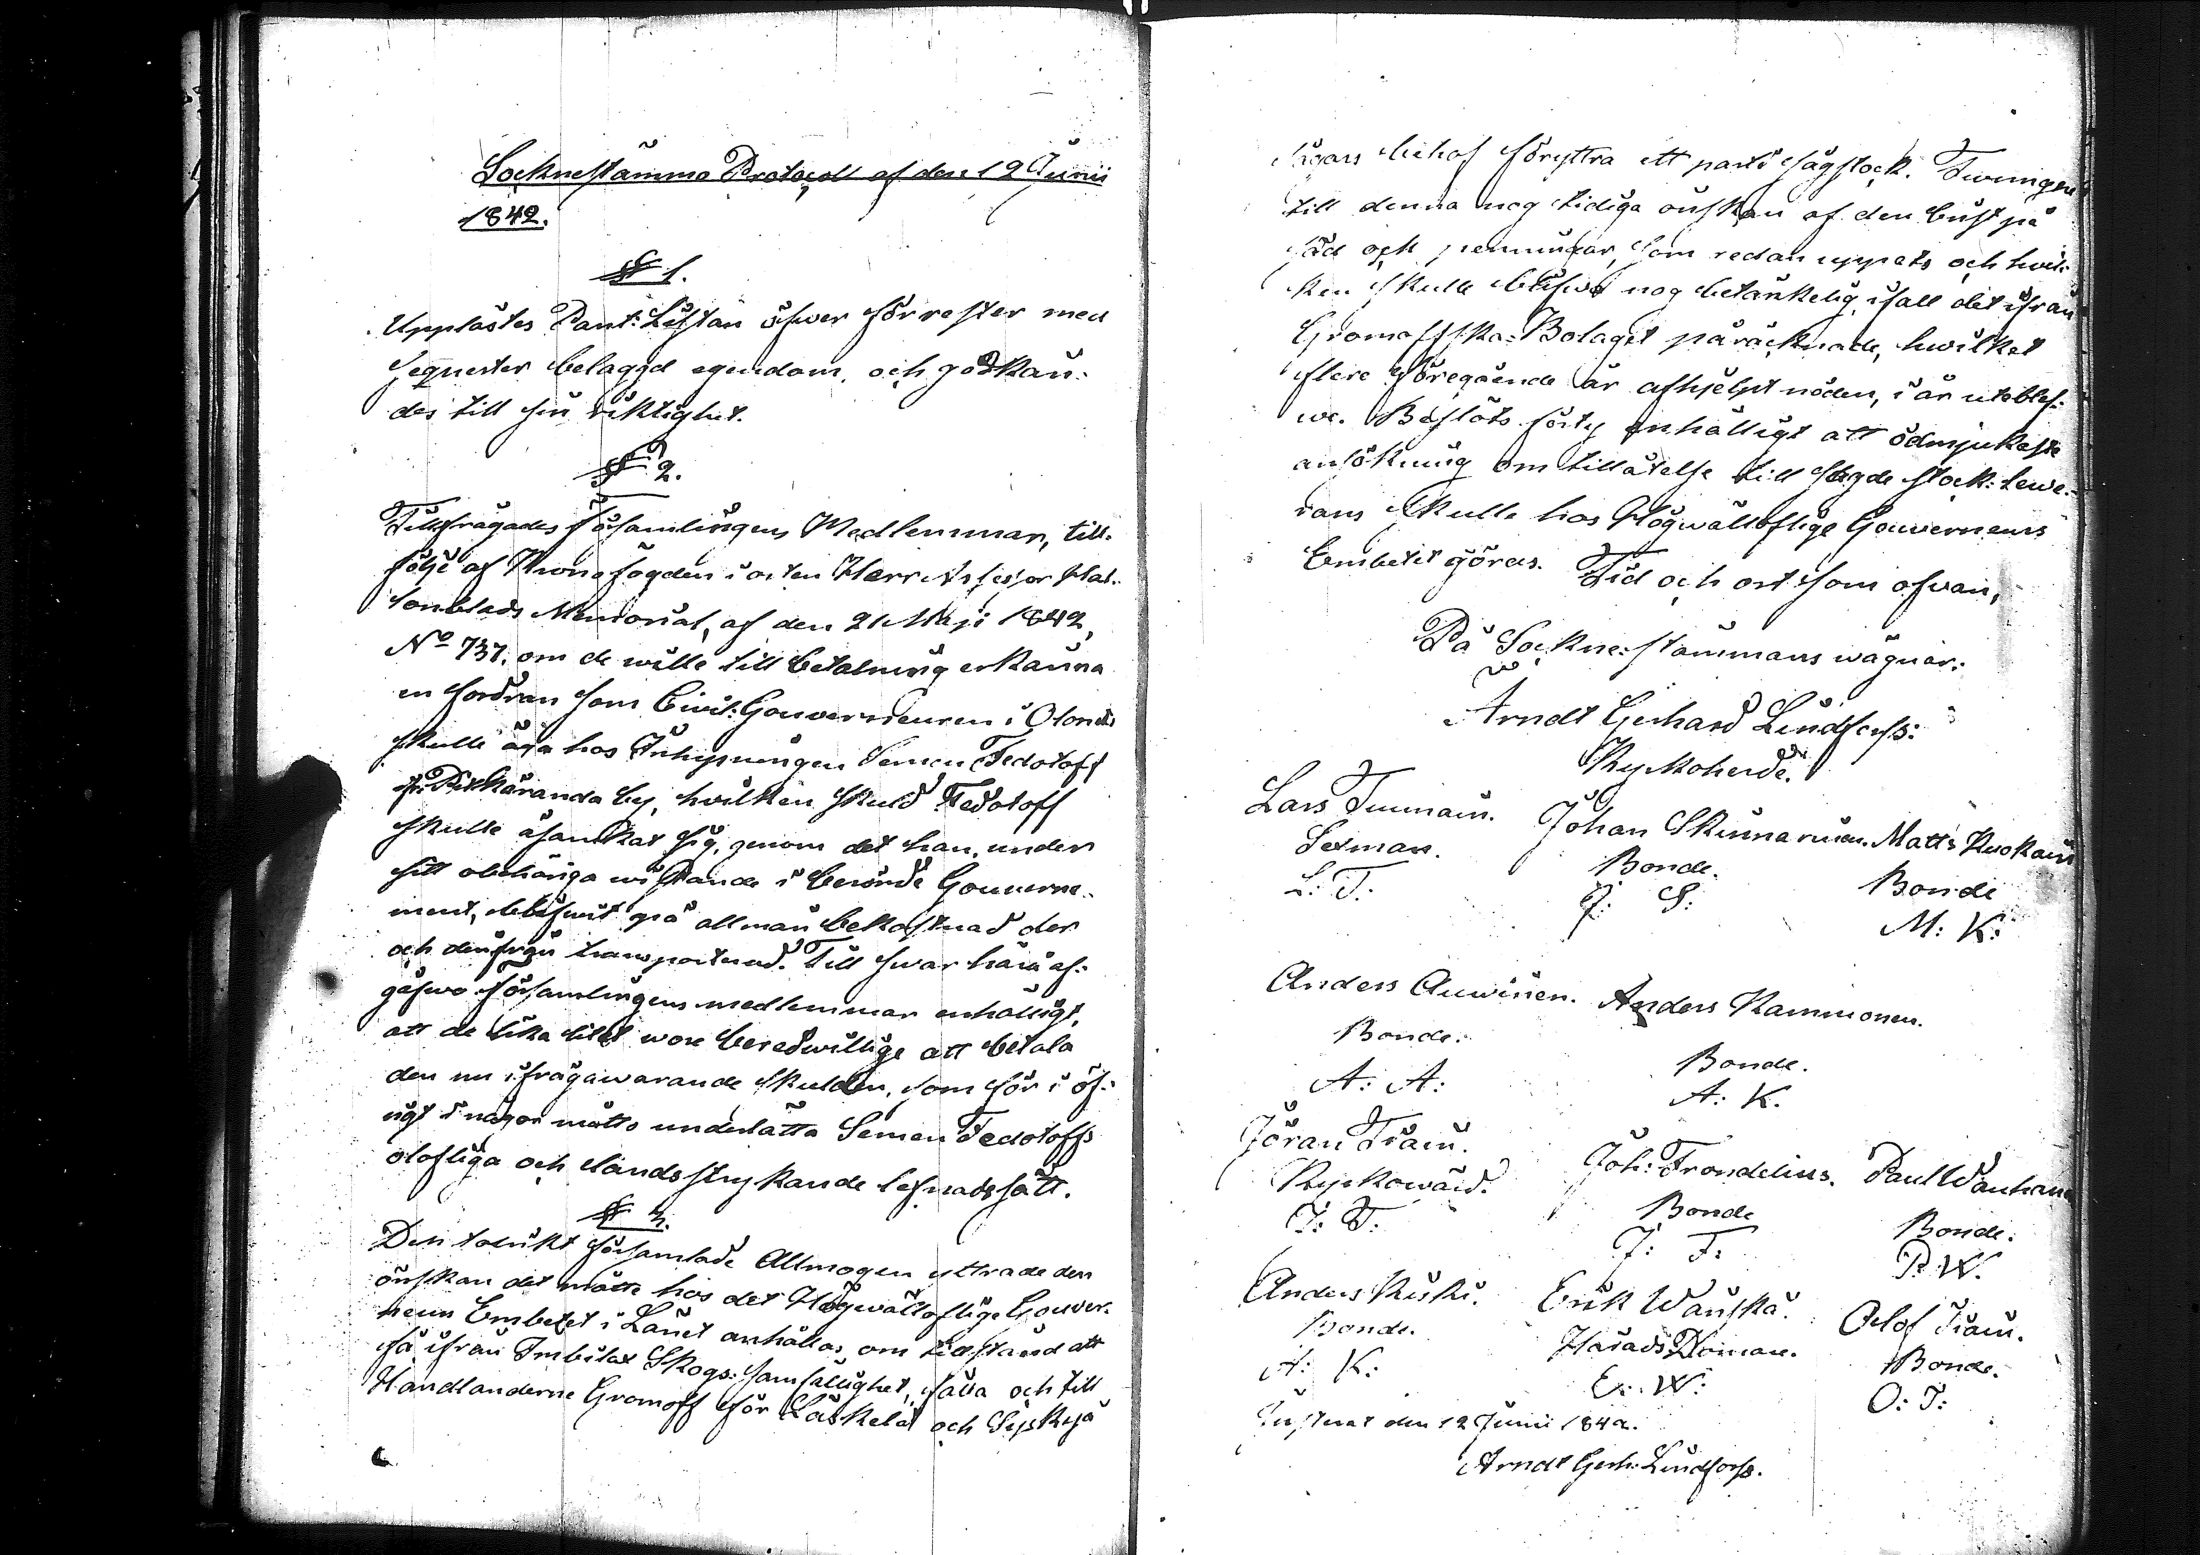 Socknestämmo Protocoll af den 12 Junii
1842.
§ 1.
Upplästes Pant: Listan öfwer förrester med
sequester belaggd egendom, och godkän-
des till sin riktighet.
§ 2.
Tillfrågades Församlingens Medlemmar, till-
följe af Kronofogden i orten Herr Assessor Hal-
lonblads Memorial, af den 21 Maji 1842,
No 737, om de wille till betalning erkänna
en fordran som Civil: Gouverneuren i Olonets
skulle äga hos Inhysningen Semen Fedotoff
fr. Pitkäranda by, hvilken skuld Fedotoff
skulle åsamkat sig, genom det han, under
sitt obehöriga wistande i berörde Gouverne-
ment, blifwit på allmän bekostnad der
och derifrån transporterad. Till swar härå af-
gåfwo Församlingens medlemmar enhälligt,
att de lika litet wore beredwillige att betala
den nu ifrågawarande skulden, som för i öf-
rigt i någor måtto underlätta Semen Fedotoffs
olofliga och landsstrykande lefnadssätt.
§ 3.
Den talrikt församlade Allmogen yttrade den
önskan det måtte hos det Högwällofliga Gouver-
neurs Embetet i Länet anhållas om tillstånd att
få ifrån Imbilax Skogs: samfällighet, fälla och till
Handlanderne Gromoff för Läskelä och Syskyjä
Sågars behof föryttra ett parti sågstock. Twungen
till denna nog tidiga önskan af den brist på
säd och penningar, som redan yppats och hwil-
ken skulle blifwa nog betänkelig, ifall det ifrån
Gromoffska: Bolaget påräcknade, hwilket
flere föregående år afhjelpt nöden, i år uteblef-
we. Beslöts förty enhälligt att ödmjukaste
ansökning om tillåtelse till sagde stock: lewe-
rans skulle hos Högwälloflige Gouverneurs
Embetet göras. Tid och ort som ofvan,
På Sockne: stämmans wägnar:
Arndt Gerhard Lindforss:
Kyrkoherde.
Lars Tuumain. Johan Skinnarinen. Matts Kuokain
Sexman. Bonde. Bonde
L: T: J: S: M: K:
Anders Auwinen. Anders Kammonen.
Bonde. Bonde.
A: A: A: K.
Jöran Tiain. Joh: Trondelius. Paul Wänhanen
Kyrkowärd. Bonde Bonde.
J: T: J: T: P: W.
Anders Kiiski. Erik Wänskä. Olof Tiain.
Bonde. Härads Domare. Bonde.
A: K: E: W: O: T:
Justerat den 12 Junii 1842.
Arndt Gerh: Lindforss.